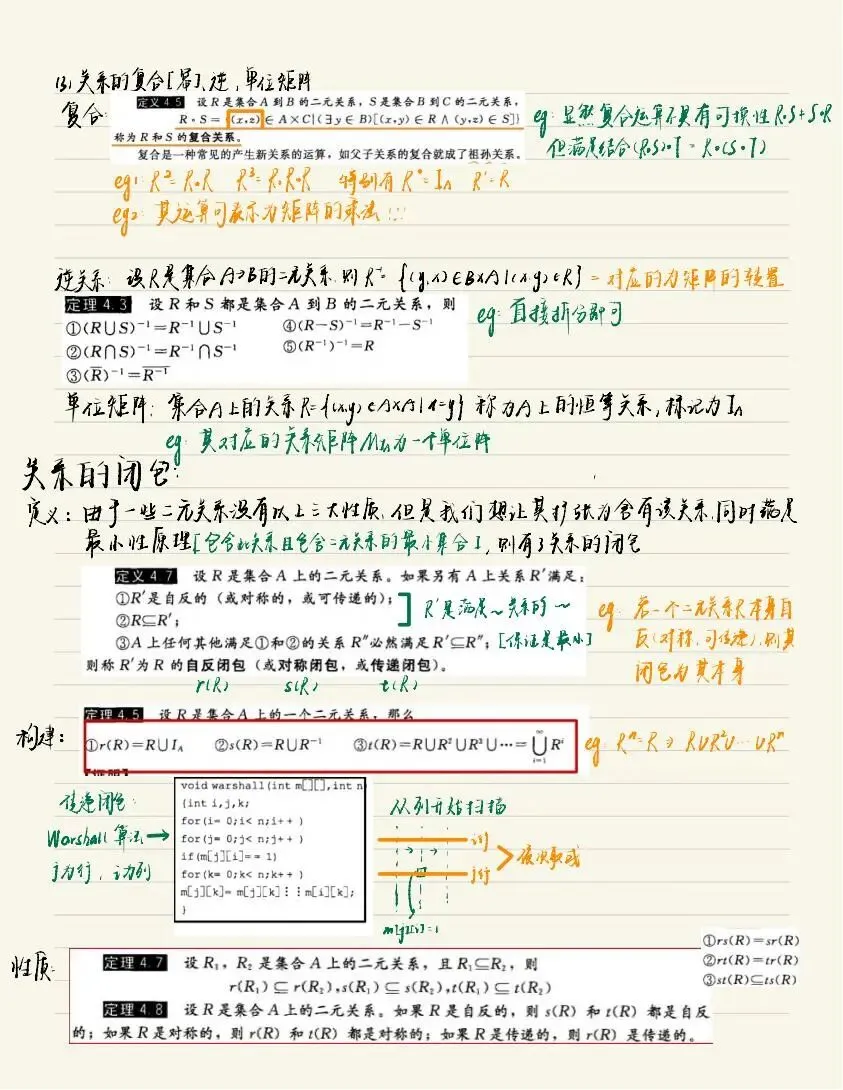 (3) 关系的复合[幂]、逆、单位矩阵
复合:
定义 4.5 设 R 是集合 A 到 B 的二元关系，S 是集合 B 到 C 的二元关系，
R∘S={(x,z)∈A×C|(∃y∈B)[(x,y)∈R∧(y,z)∈S]}
称为 R 和 S 的复合关系。
复合是一种常见的产生新关系的运算，如父子关系的复合就成了祖孙关系。
eg: 显然复合运算不具有可换性R∘S≠S∘R
但满足结合(R∘S)∘T=R∘(S∘T)
eg1: R²=R∘R R³=R∘R∘R 特别有R⁰=I_A R¹=R
eg2: 其运算可表示为矩阵的乘法!!!
逆关系: 设R是集合A→B的二元关系,则R⁻¹={(y,x)∈B×A|(x,y)∈R} =对应的为矩阵的转置
定理 4.3 设 R 和 S 都是集合 A 到 B 的二元关系，则
①(R∪S)⁻¹=R⁻¹∪S⁻¹ ④(R−S)⁻¹=R⁻¹−S⁻¹
②(R∩S)⁻¹=R⁻¹∩S⁻¹ ⑤(R⁻¹)⁻¹=R
③(R̅)⁻¹=R̅⁻̅¹̅
eg: 直接拆分即可
单位矩阵: 集合A上的关系R={(x,y)∈A×A|x=y} 称为A上的恒等关系,标记为I_A
eg: 其对应的关系矩阵M_{I_A}为一个单位阵
关系的闭包:
定义: 由于一些二元关系没有以上三大性质,但是我们想让其扩张为含有该关系,同时满足
最小性原理[包含此关系且包含二元关系的最小集合],则有了关系的闭包
定义 4.7 设 R 是集合 A 上的二元关系。如果另有 A 上关系 R′满足：
①R′是自反的（或对称的，或可传递的）；
②R⊆R′；
③A 上任何其他满足①和②的关系 R″必然满足 R′⊆R″；[保证是最小]
则称 R′为 R 的自反闭包（或对称闭包，或传递闭包）。
r(R) s(R) t(R)
R′是满足~关系的~
eg: 若一个二元关系R本身自
反(对称,可传递),则其
闭包为其本身
构建:
定理 4.5 设 R 是集合 A 上的一个二元关系，那么
①r(R)=R∪I_A ②s(R)=R∪R⁻¹ ③t(R)=R∪R²∪R³∪⋯=⋃_{i=1}^{∞}Rⁱ
eg: Rⁿ=R⇒R∪R²∪⋯∪Rⁿ
传递闭包:
Warshall 算法→
j为行, i为列
void warshall(int m[][],int n
{int i,j,k;
for(i= 0;i< n;i++ )
for(j= 0;j< n;j++ )
if(m[j][i]== 1)
for(k= 0;k< n;k++ )
m[j][k]= m[j][k]⋮⋮m[i][k];
}
从列开始扫描
i行
j行
m[j][i]=1
性质:
定理 4.7 设 R₁，R₂ 是集合 A 上的二元关系，且 R₁⊆R₂，则
r(R₁)⊆r(R₂),s(R₁)⊆s(R₂),t(R₁)⊆t(R₂)
定理 4.8 设 R 是集合 A 上的二元关系。如果 R 是自反的，则 s(R) 和 t(R) 都是自反
的；如果 R 是对称的，则 r(R) 和 t(R) 都是对称的；如果 R 是传递的，则 r(R) 是传递的。
①rs(R)=sr(R)
②rt(R)=tr(R)
③st(R)⊆ts(R)